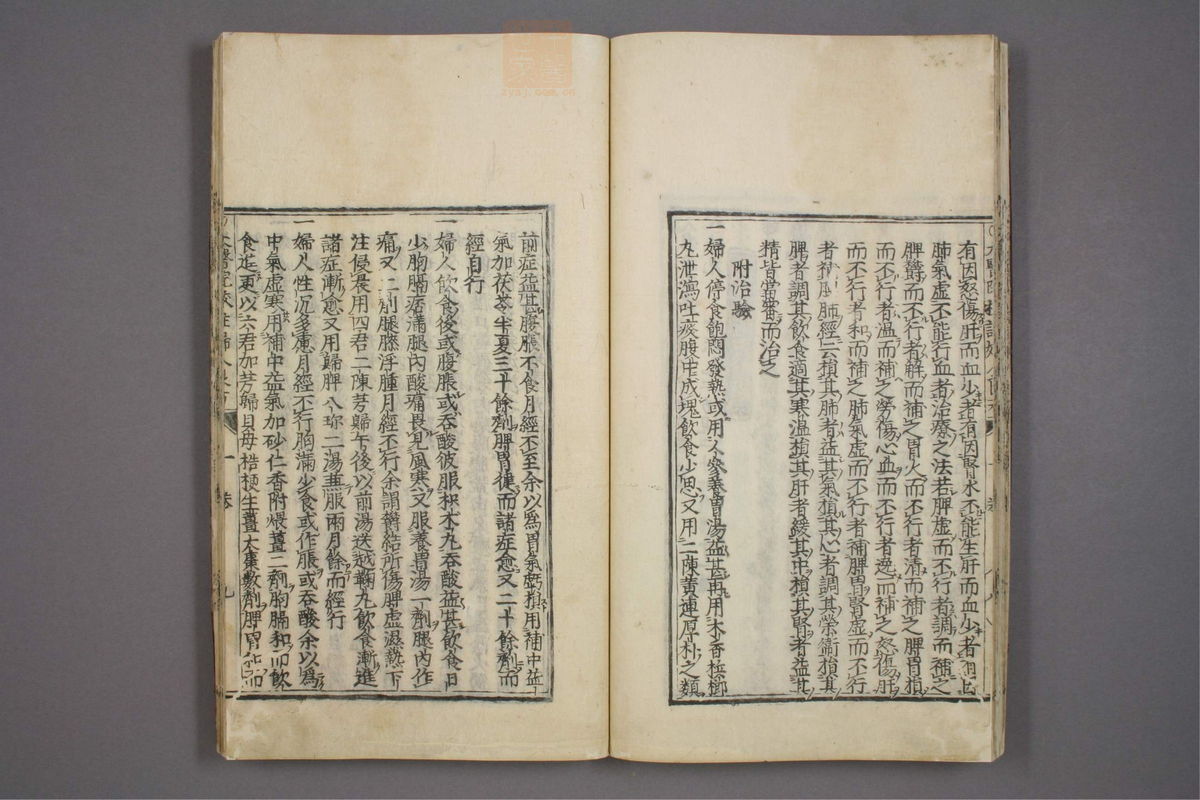 有因怒傷肝而血少者有因腎水不能生肝而血少者有因
肺氣虛不能行血者治療之法若脾虛而不行者調而補之
脾欝而不行者觧而補之胃火而不行者清而補之脾胃損
而不行者温而補之勞傷心血而不行者逸而補之怒傷肝
而不行者和而補之肺氣虛而不行者補脾胃腎虛而不行
者補脾肺經云損其肺者益其氣損其心者調其榮衛損其
脾者調其飲食適其寒温損其肝者緩其中損其腎者益其
精皆當審而治之
附治驗
一婦人停食飽悶發熱或用人參養胃湯益甚再用木香檳榔
丸泄瀉吐痰腹中成塊飲食少思又用二陳黄連厚朴之類
前症益甚腹脹不食月經不至余以爲胃氣虧損用補中益
氣加茯苓半夏三十餘劑脾胃健而諸症愈又二十餘劑而
經自行
一婦人飲食後或腹脹或吞酸彼服枳朮丸吞酸益甚飲食日
少胸膈痞滿腿内酸痛畏見風寒又服養胃湯一劑腿内作
痛又二劑腿膝浮腫月經不行余謂欝結所傷脾虛濕熱下
注侵晨用四君二陳芎歸午後以前湯送越鞠丸飲食漸進
諸症漸愈又用歸脾八珎二湯蒹服兩月餘而經行
一婦人性沉多慮月經不行胸滿少食或作脹或吞酸余以爲
中氣虛寒用補中益氣加砂仁香附煨薑二劑胸膈和而飲
食進更以六君加芎歸貝母桔梗生薑大棗數劑脾胃而
一卷
九
zysj.com.cn